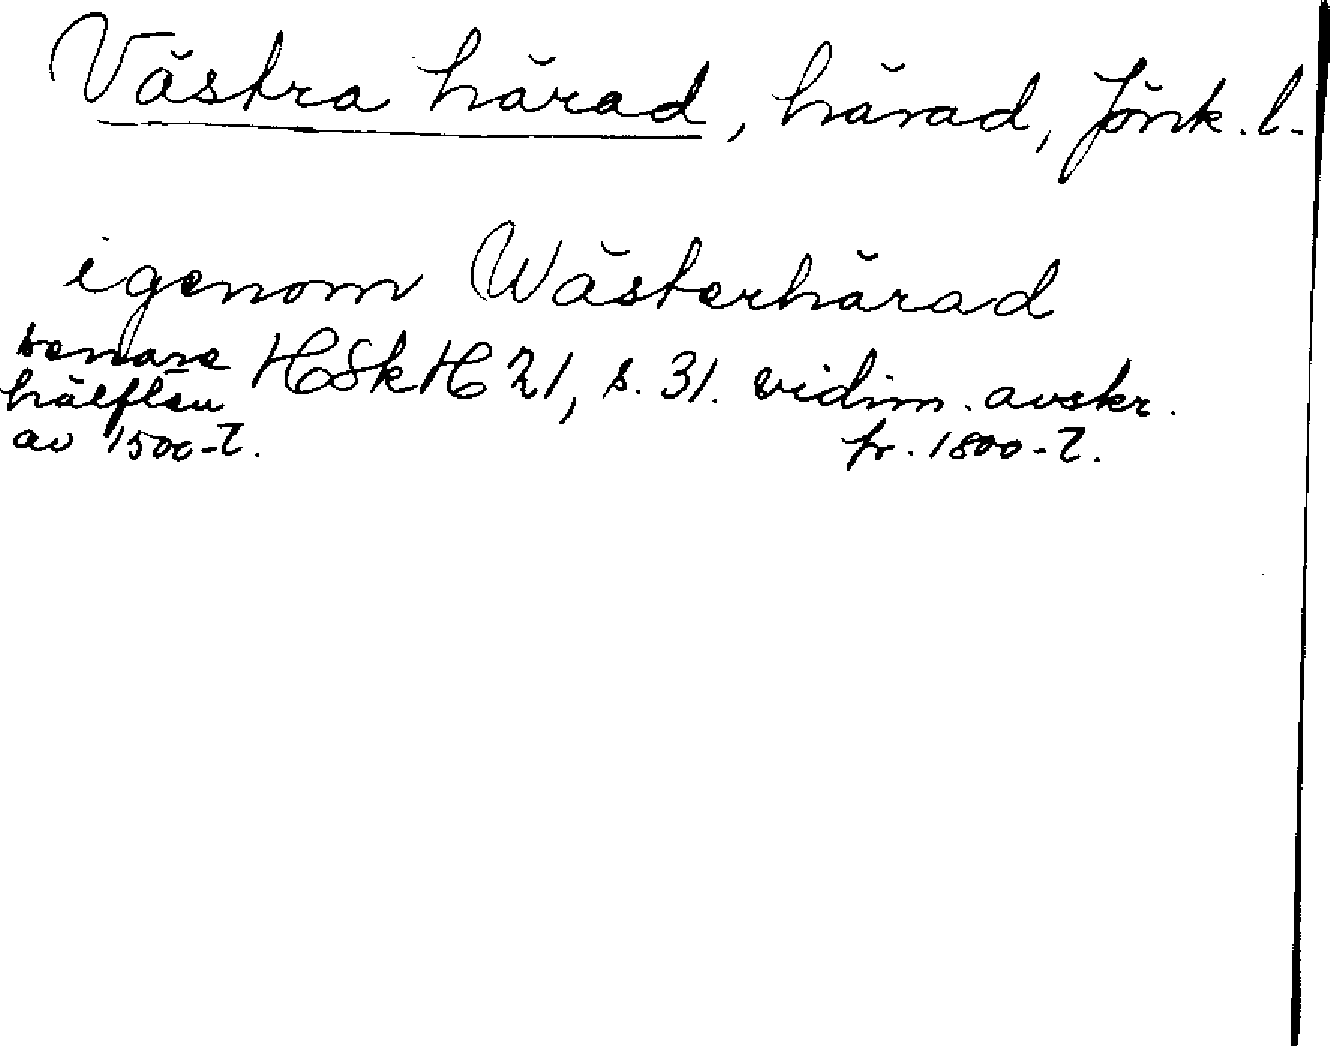 Västra härad, härad, Jönk. l.
igenom Wästerhärad
senare HSkH 21, s. 31. vidim. avskr.
hälften
av 1500-t. fr. 1800-t.